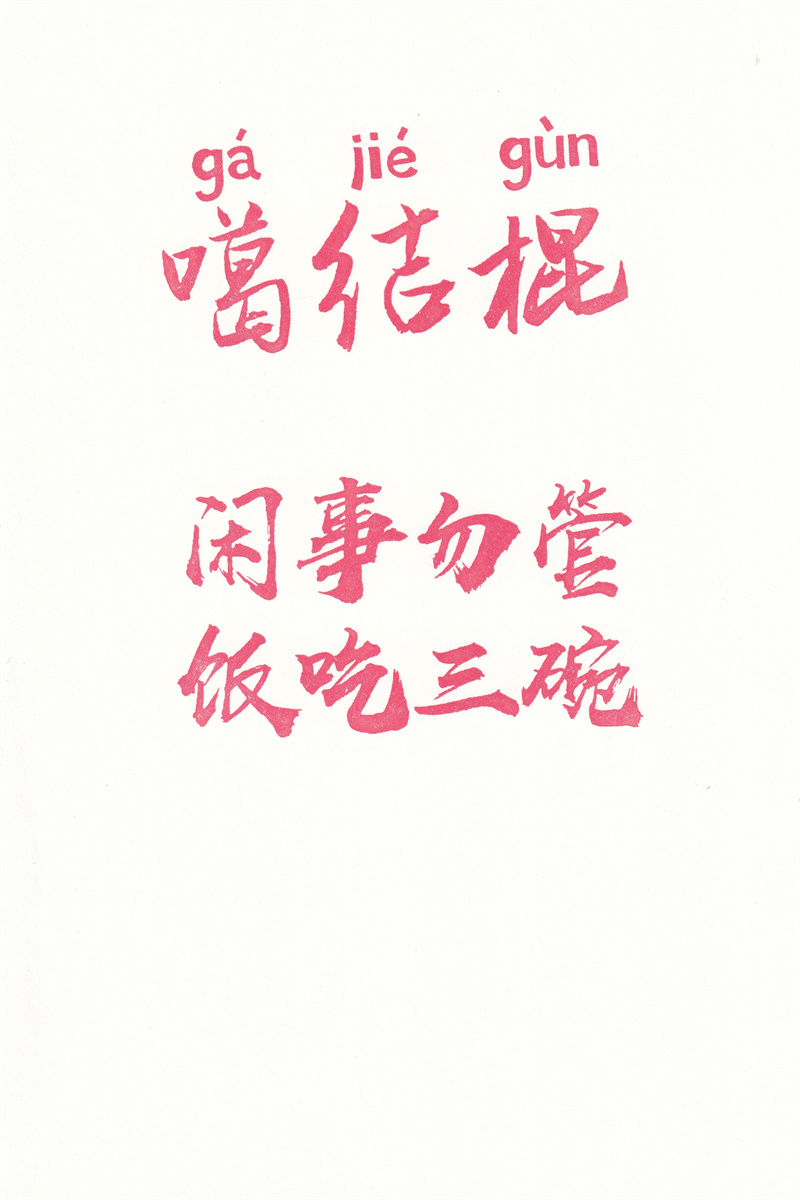 gá jié gùn
噶结棍
闲事勿管
饭吃三碗